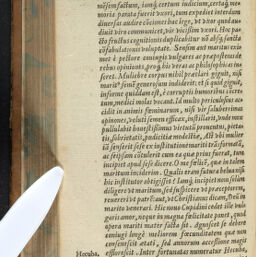 nô sem factum, iamq́; certum indicium, certaq́; me-
moria parata fuerit uxori, tum expedit interdum
diversas audire
diuit viro communicet, vir vicissim uxori. Hoc pa-
cto fructus cognitionis duplicabitur
cõfabulationis voluptate. Sensim aut maritus exi-
met è pectore coniugis vulgares ac præposteras de
rebus opiniones, proq́; his veras ac philosophicas in-
seret. Muliebre corpus nihil præclari gignit, nisi
marito semẽ generosum indiderit: et si quid gignit,
informe quiddam est, è corruptis humoribus cõcre-
tum, medici molas vocant. Id multo periculosius ac-
cidit in animis fœminarum, nisi vir salubrium
opiniones, veluti semen efficax, instillarit, unde mox
pullulabit honestissimus virtutũ prouentus, pieta-
tis, sobrietatis, pudicitiæ modestiæ. At ubi mulier
iã senserit sese ex institutione mariti trãsformatã,
ac seipsam cõtulerit cum ea quæ prius fuerat, tum
incipiet apud sese dicere. O me fœlicẽ, quæ in talem
maritum inciderim. Qualis eram futura belua nisi
hic institutor obtigisset? Iamq́; incipiet non solum
diligere vt maritum, sed suspicere vt præceptorem,
reuereri vt parẽtem, vt Christianus dicam, Deũ in
marito venerari. Hic nouus Cupidini cedet ille vul-
garis amor, neque in magna fœlicitate ponet, quod
opera mariti mater facta sit. Agnoscet se debere
coniugi longè meliorem fœcunditatem quæ non
consenescit ætate, sed annorum accessione magis
efflorescit. Inter fortunatas numeratur Hecuba,
Hecuba,